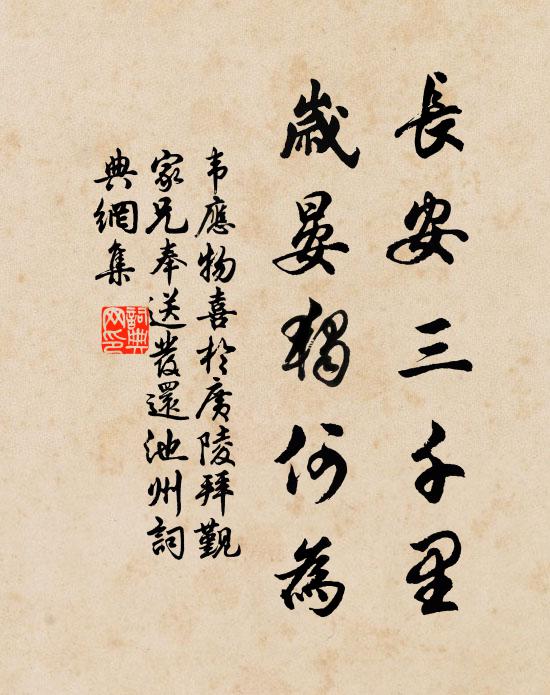 長安三千里
歲晏獨何為
韦應物喜於廣陵拜觐
家兄奉送發還池州詞
典網集
詞典
网印